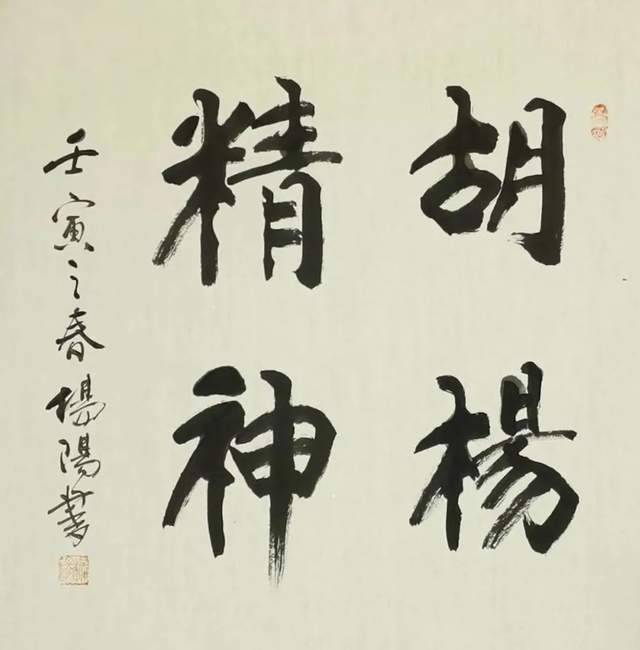 胡楊
精神
壬寅之春楊陽書